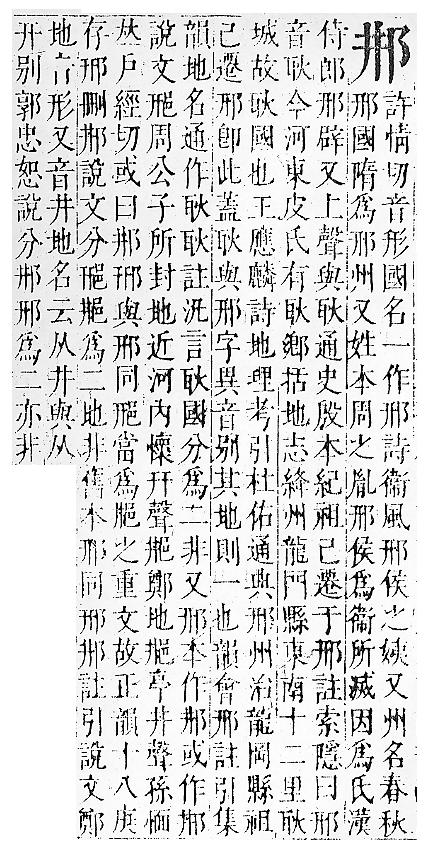 郉許情切音形國名一作邢詩衞風邢侯之姨又州名春秋
邢國隋爲邢州又姓本周之胤邢侯爲衞所滅因爲氏漢
侍郎邢辟又上聲與耿通史殷本紀祖己遷于邢註索隱曰邢
音耿今河東皮氏有耿鄉括地志絳州龍門縣東南十二里耿
城故耿國也王應麟詩地理考引杜佑通典邢州治龍岡縣祖
己遷邢卽此蓋耿與邢字異音别其地則一也韻會邢註引集
韻地名通作耿耿註汎言耿國分爲二非又邢本作郉或作郉
說文周公子所封地近河內懷幵聲鄭地亭井聲孫愐
𠀤戶經切或曰郉邢與邢同當爲之重文故正韻十八庚
存邢刪郉說文分爲二地非舊本邢同邢郉註引說文鄭
地言形又音井地名云从井與从
幵别郭忠恕說分郉邢爲二亦非